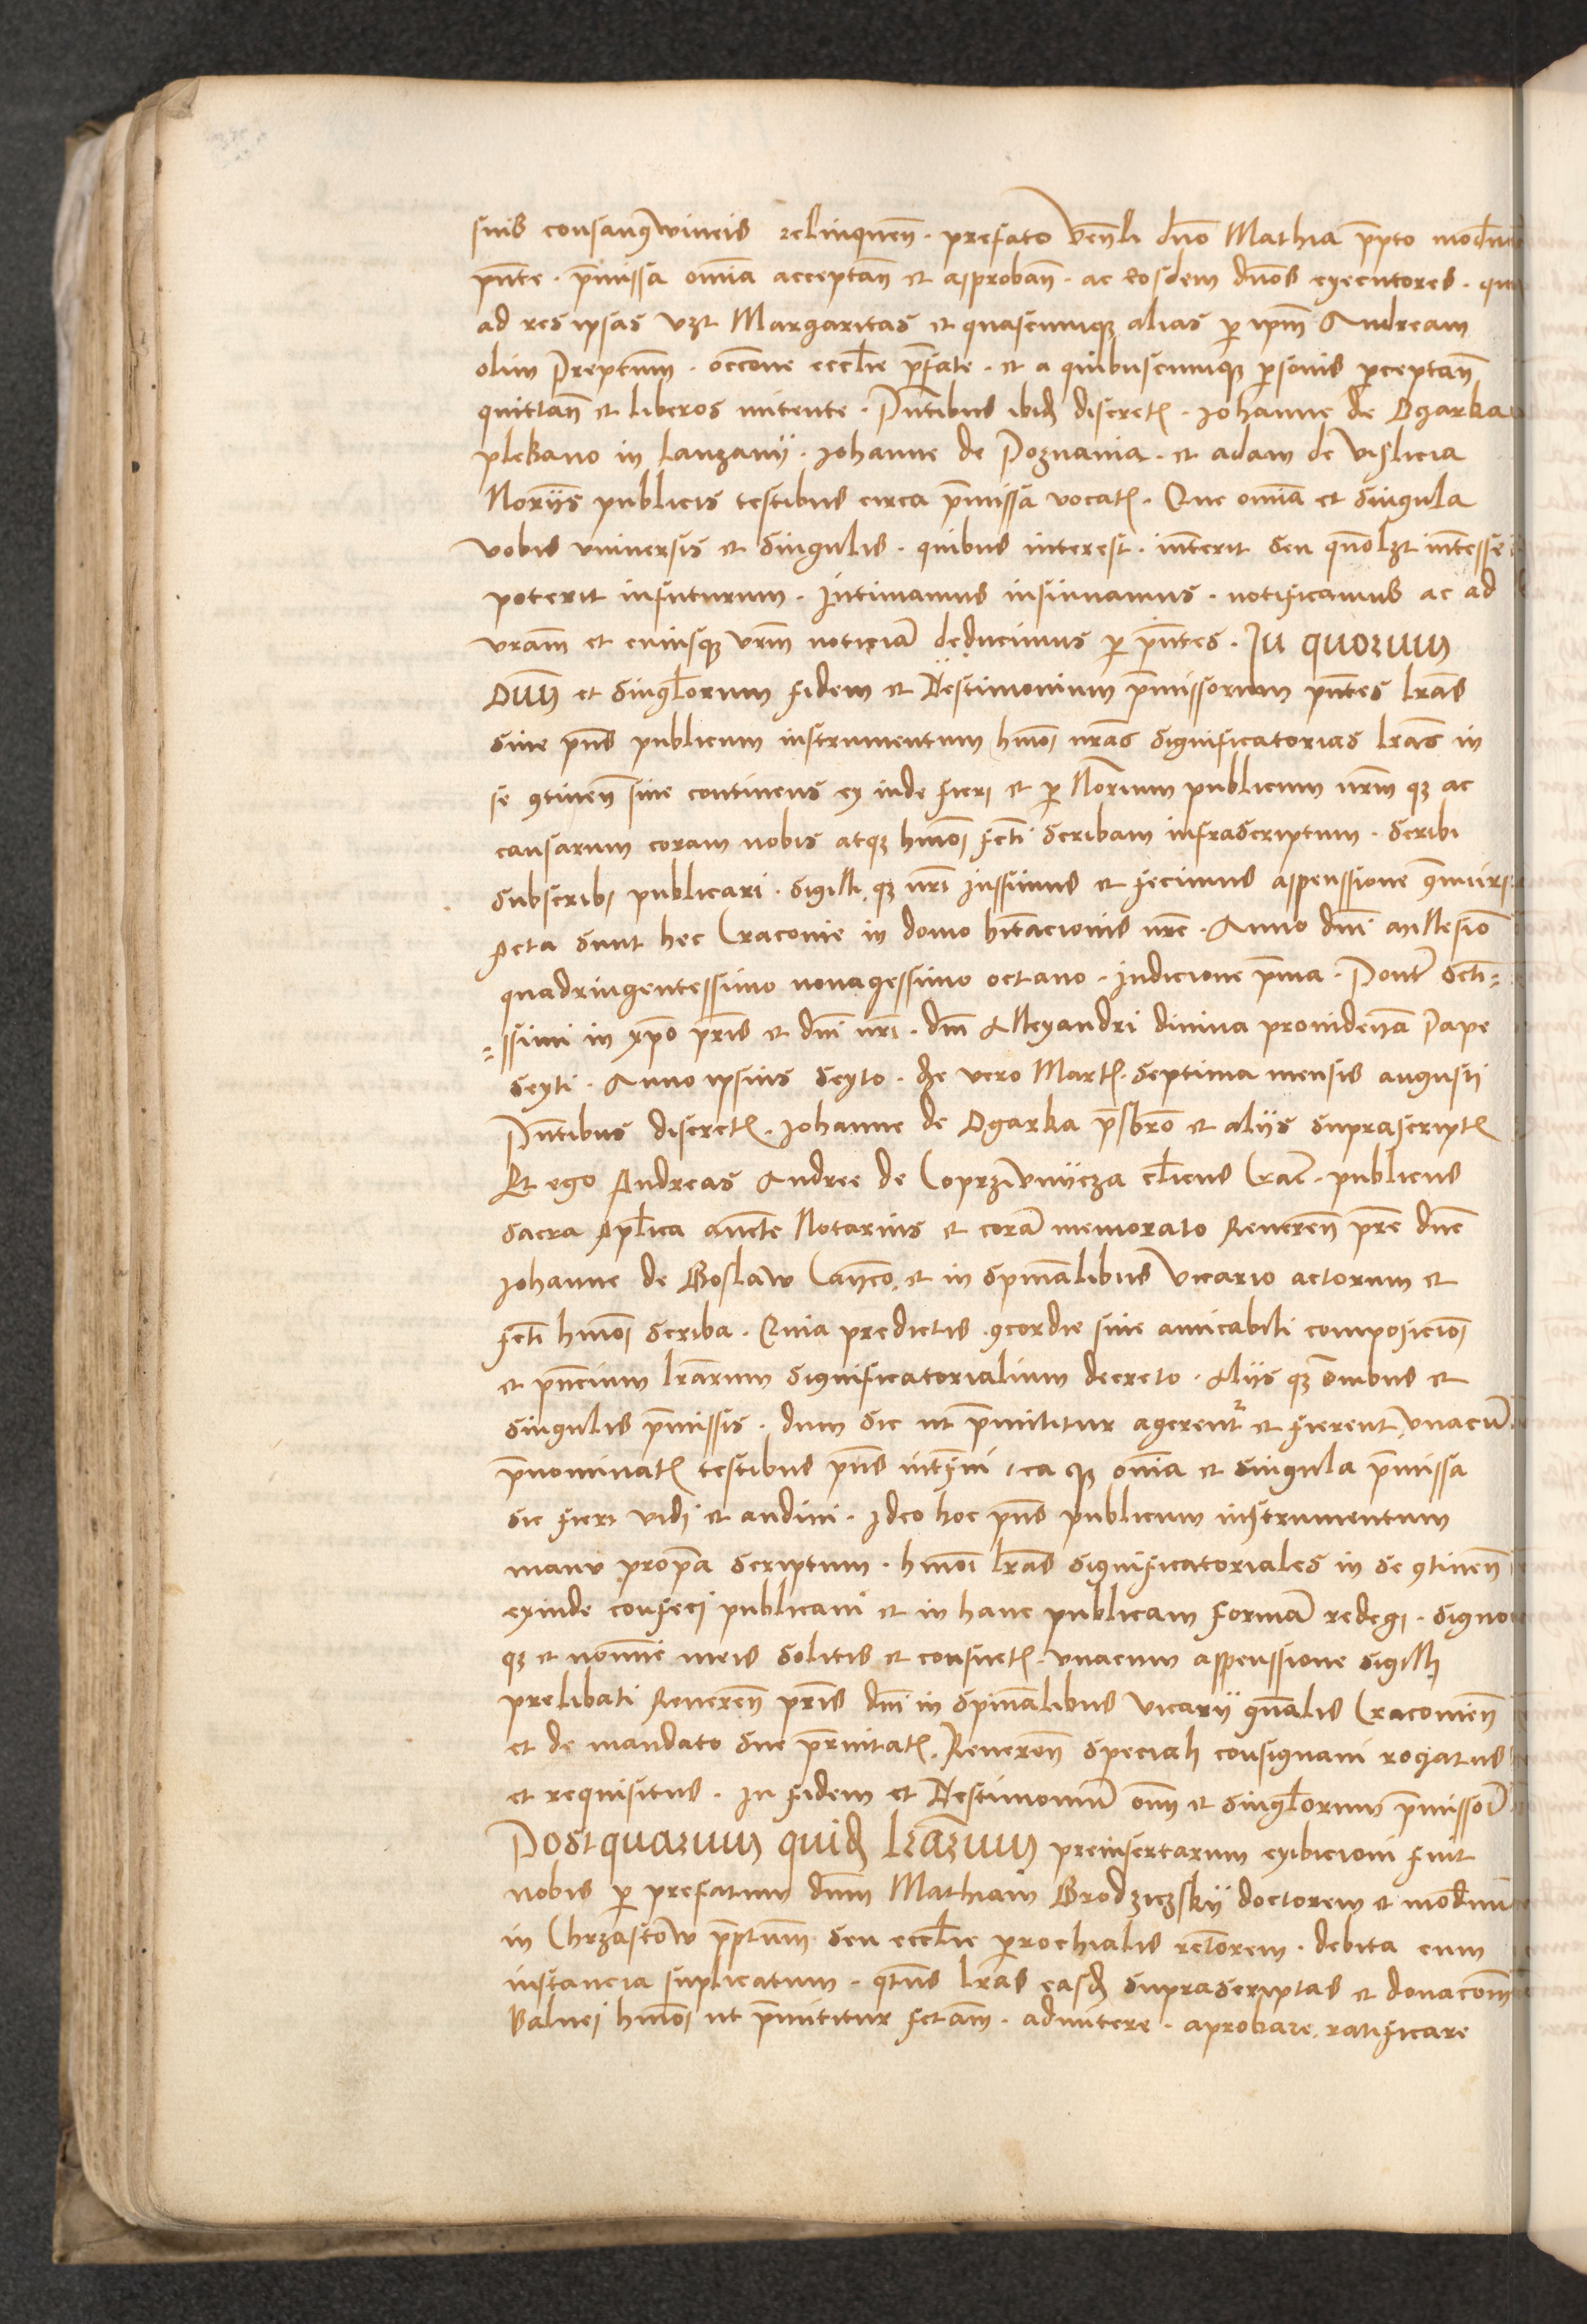 suis consangwineis relinquen̄ · prefato Ven̄li dn̄o Mathia p̄pto mod̄n
pn̄te · p̄missa om̄ia acceptan̄ et asproban̄ · ac eosdem dn̄os executores ·
ad res ipsas vzt Margaritas et quascumqꝫ alias ꝑ ip̄m Andream
olim Preptum̄ · occ̄one eccl̄ie p̄fate · et a quibuscumqꝫ ꝑsonis ꝑceptan̄
quittan̄ et liberos mitente · Pn̄tibus ibid̄ discretꝭ · Johanne de Ogarka
plebano in Lanzanÿ · Johanne de Poznania · et adam de Vislicia
Nor̄ijs publicis testibus circa p̄missa vocatꝭ · Que om̄ia et singula
vobis vniuersis et singulis · quibus interest · int̄erit seu quōlꝫt int̄esse
poterit infuturum · Intimamus insinuamus · notificamus ac ad
vram̄ et cuiusqꝫ vrm̄ noticiā deducimus ꝑ p̄ntes · In quorum
Oum̄ et singl̄orum fidem et Testimonium p̄missorum pn̄tes lrās
siue pn̄s publicum instrumentum hmōi nr̄as significatorias lrās in
se ꝯtinen̄ siue continens ex inde fieri et ꝑ Nor̄ium publicum nrm̄ qꝫ ac
causarum coram nobis atqꝫ hmōi fcti scribam infrascriptum · scribi
subscribi publicari · sigilli qꝫ nr̄i Jussimus et fecimus aspenssione
Acta sunt hec Cracouie in domo hītacionis nr̄e · Anno dn̄i millesiō
quadringentessimo nonagessimo octauo · Indicione p̄ma · Pont̄ sct̄i=
=ssimi in xp̄o pr̄is et dn̄i nr̄i · dn̄i Allexandri diuina prouidenc̄ia Pape
sexti · Anno ipsius sexto · die vero Martꝭ · Septima mensis augusti
Pn̄tibus discretꝭ · Johanne de Ogarka p̄sbrō et alijs suprascriptꝭ
Et ego Andreas Andree de Coprziwnÿcza cl̄icus Crac̄ · publicus
sacra Apl̄ica auct̄e Notarius et corā memorato Reueren̄ pr̄e dn̄o
Johanne de Boslaw Can̄co · et in spūalibus Vicario actorum et
fct̄i hmōi scriba · Quia predictis ꝯcordie siue amicabili composiciōi
et pn̄cium lrārum significatorialium decreto · Alijs qꝫ om̄ibus et
singulis p̄missis · dum sic ut p̄mittitur agerentr et fierent vnacū
p̄nominatꝭ testibus pn̄s intf̄ui ea qꝫ om̄ia et singula p̄missa
sic fieri vidi et audiui · Ideo hoc pn̄s publicum instrumentum
manu propa scriptum · hmōi lrās significatoriales in se ꝯtinen̄
exinde confeci publicaui et in hanc publicam formā redegi · signo
qꝫ et nomine meis solitis et consuetꝭ · vnacum aspenssione sigilli
prelibati Reueren̄ pr̄is dn̄i in spūalibus Vicarij gn̄alis Cracouien̄
et de mandato sue p̄rnitatꝭ · Reueren̄ speciali consignaui rogatus
et requisitus · In fidem et Testimoniū om̄ et singl̄orum p̄missor̄
Postquarum quid̄ lrārum preinsertarum exibicioni fuit
nobis ꝑ prefatum dn̄m Mathiam Brodziczskÿ doctorem et modn̄ū
in Chrzastow p̄ptum̄ seu eccl̄ie ꝑrochialis rct̄orem · debita cum
instancia suplicatum · qt̄us lrās easd̄ suprascriptas et donacōm̄
Balnei hmōi ut p̄mittitur fctam̄ · admitere · aprobare ratificare